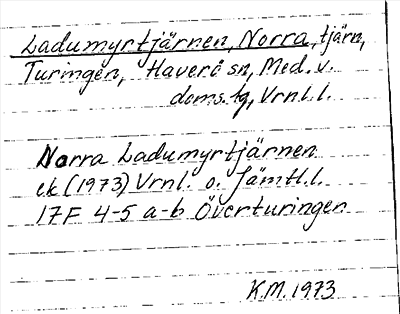 Ladumyrtjärnen, Norra, tjärn,
Turingen, Haverö sn, Med. v.
doms.tg, Vrnl.l.
Norra Ladumyrtjärnen
ek (1973) Vrnl. o. Jämtl.l.
17F 4-5 a-b Överturingen
K.M. 1973